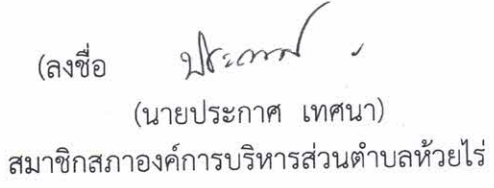 (ลงชื่อ ประกาศ
(นายประกาศ เทศนา)
สมาชิกสภาองค์การบริหารส่วนตำบลห้วยไร่